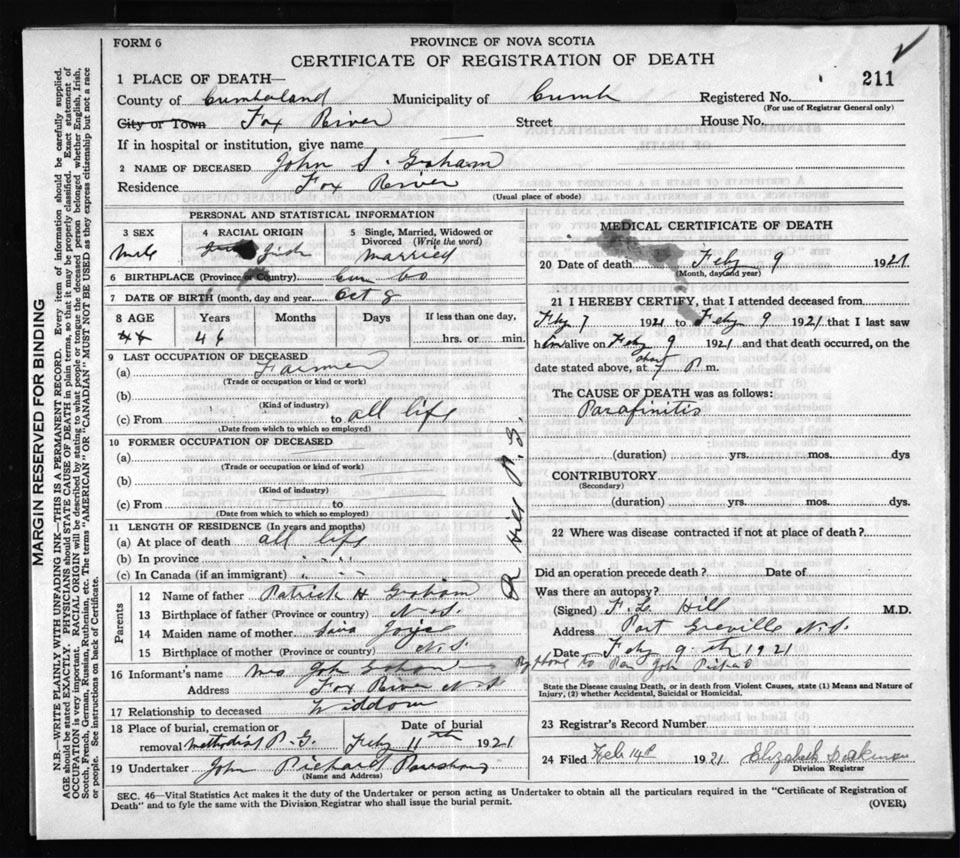 FORM 6
PROVINCE OF NOVA SCOTIA
CERTIFICATE OF REGISTRATION OF DEATH
211
1 PLACE OF DEATH—
County of Cumberland Municipality of Cumb Registered No.
(For use of Registrar General only)
City or Town Fox River Street House No.
If in hospital or institution, give name
2 NAME OF DECEASED John S. Graham
Residence Fox River
(Usual place of abode)
PERSONAL AND STATISTICAL INFORMATION
3 SEX
Male
4 RACIAL ORIGIN
Irish
5 Single, Married, Widowed or Divorced (Write the word)
Married
6 BIRTHPLACE (Province or Country) Cum Co
7 DATE OF BIRTH (month, day and year) Oct 8
8 AGE Years Months Days If less than one day,
46 hrs. or min.
9 LAST OCCUPATION OF DECEASED
(a) Farmer
(Trade or occupation or kind or work)
(b)
(Kind of industry)
(c) From to all life
(Date from which to which so employed)
10 FORMER OCCUPATION OF DECEASED
(a)
(Trade or occupation or kind of work)
(b)
(Kind of industry)
(c) From to
(Date from which to which so employed)
11 LENGTH OF RESIDENCE (In years and months)
(a) At place of death all life
(b) In province " "
(c) In Canada (if an immigrant) " "
Parents
12 Name of father Patrick H Graham
13 Birthplace of father (Province or country) N.S.
14 Maiden name of mother
15 Birthplace of mother (Province or country) N.S.
16 Informant's name Mrs John Graham
Address Fox River N.S
17 Relationship to deceased Widdow
18 Place of burial, cremation or removal Methodist P.G. Date of burial Feby 11th 1921
19 Undertaker John Pickard
(Name and Address)
MEDICAL CERTIFICATE OF DEATH
20 Date of death Feby 9 1921
(Month, day and year)
21 I HEREBY CERTIFY, that I attended deceased from
Feby 7 1921 to Feby 9 1921 that I last saw
him alive on Feby 9 1921 and that death occurred, on the
date stated above, at about 7 P m.
The CAUSE OF DEATH was as follows:
(duration) yrs. mos. dys
CONTRIBUTORY
(Secondary)
(duration) yrs. mos. dys.
22 Where was disease contracted if not at place of death?
Did an operation precede death? Date of
Was there an autopsy?
(Signed) F. L. Hill M.D.
Address Port Greville N.S.
Date Feby 9th 1921
State the Disease causing Death, or in death from Violent Causes, state (1) Means and Nature of
Injury, (2) whether Accidental, Suicidal or Homicidal.
23 Registrar's Record Number
24 Filed Feb 14th 1921 Elizabeth
Division Registrar
SEC. 46—Vital Statistics Act makes it the duty of the Undertaker or person acting as Undertaker to obtain all the particulars required in the "Certificate of Registration of
Death" and to fyle the same with the Division Registrar who shall issue the burial permit.
(OVER)
MARGIN RESERVED FOR BINDING
N.B.—WRITE PLAINLY WITH UNFADING INK—THIS IS A PERMANENT RECORD. Every item of information should be carefully supplied.
AGE should be stated EXACTLY. PHYSICIANS should STATE CAUSE OF DEATH in plain terms, so that it may be properly classified. Exact statement of
OCCUPATION is very important. RACIAL ORIGIN will be described by stating to what people or tongue the deceased person belonged whether English, Irish,
Scotch, French, German, Russian, Ruthenian, etc. The terms "AMERICAN" OR "CANADIAN" MUST NOT BE USED as they express citizenship but not a race
or people. See instructions on back of Certificate.